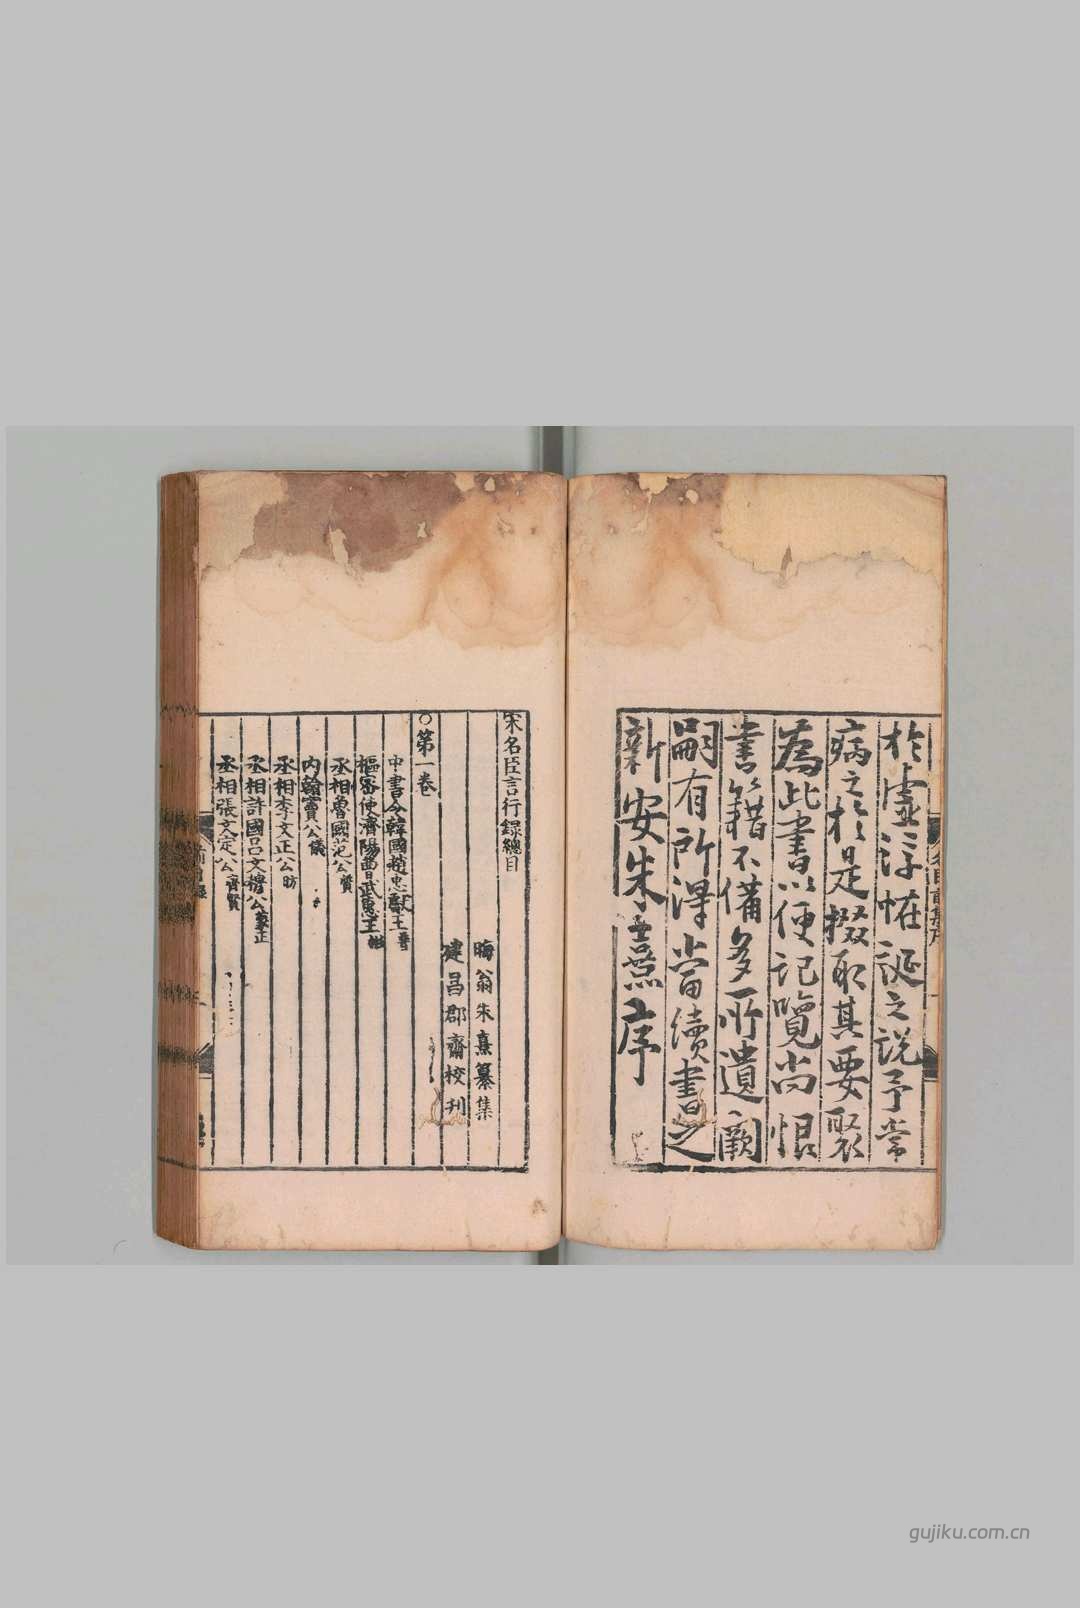 於虛浮怪誕之說予常
病之於是掇取其要聚
為此書以便記覽尚恨
書籍不備多所遺闕
嗣有所得當續書之
新安朱熹序
宋名臣言行録總目
晦翁朱熹纂集
建昌郡齋校刊
○第一卷
中書令韓國趙忠獻王普
樞密使濟陽曹武惠王彬
丞相魯國范公質
内翰竇公儀
丞相李文正公昉
丞相許國呂文穆公蒙正
丞相張文定公齊賢
gujiku.com.cn